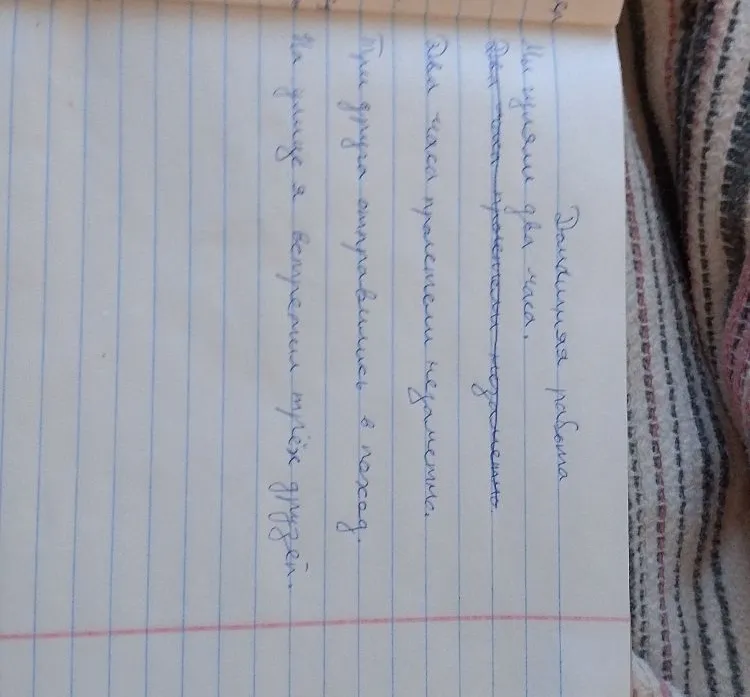 Домашняя работа
Мы гуляли два часа.
Два часа пролетели незаметно.
Два часа пролетели незаметно.
Три друга отправились в поход.
На улице я встретил трёх друзей.